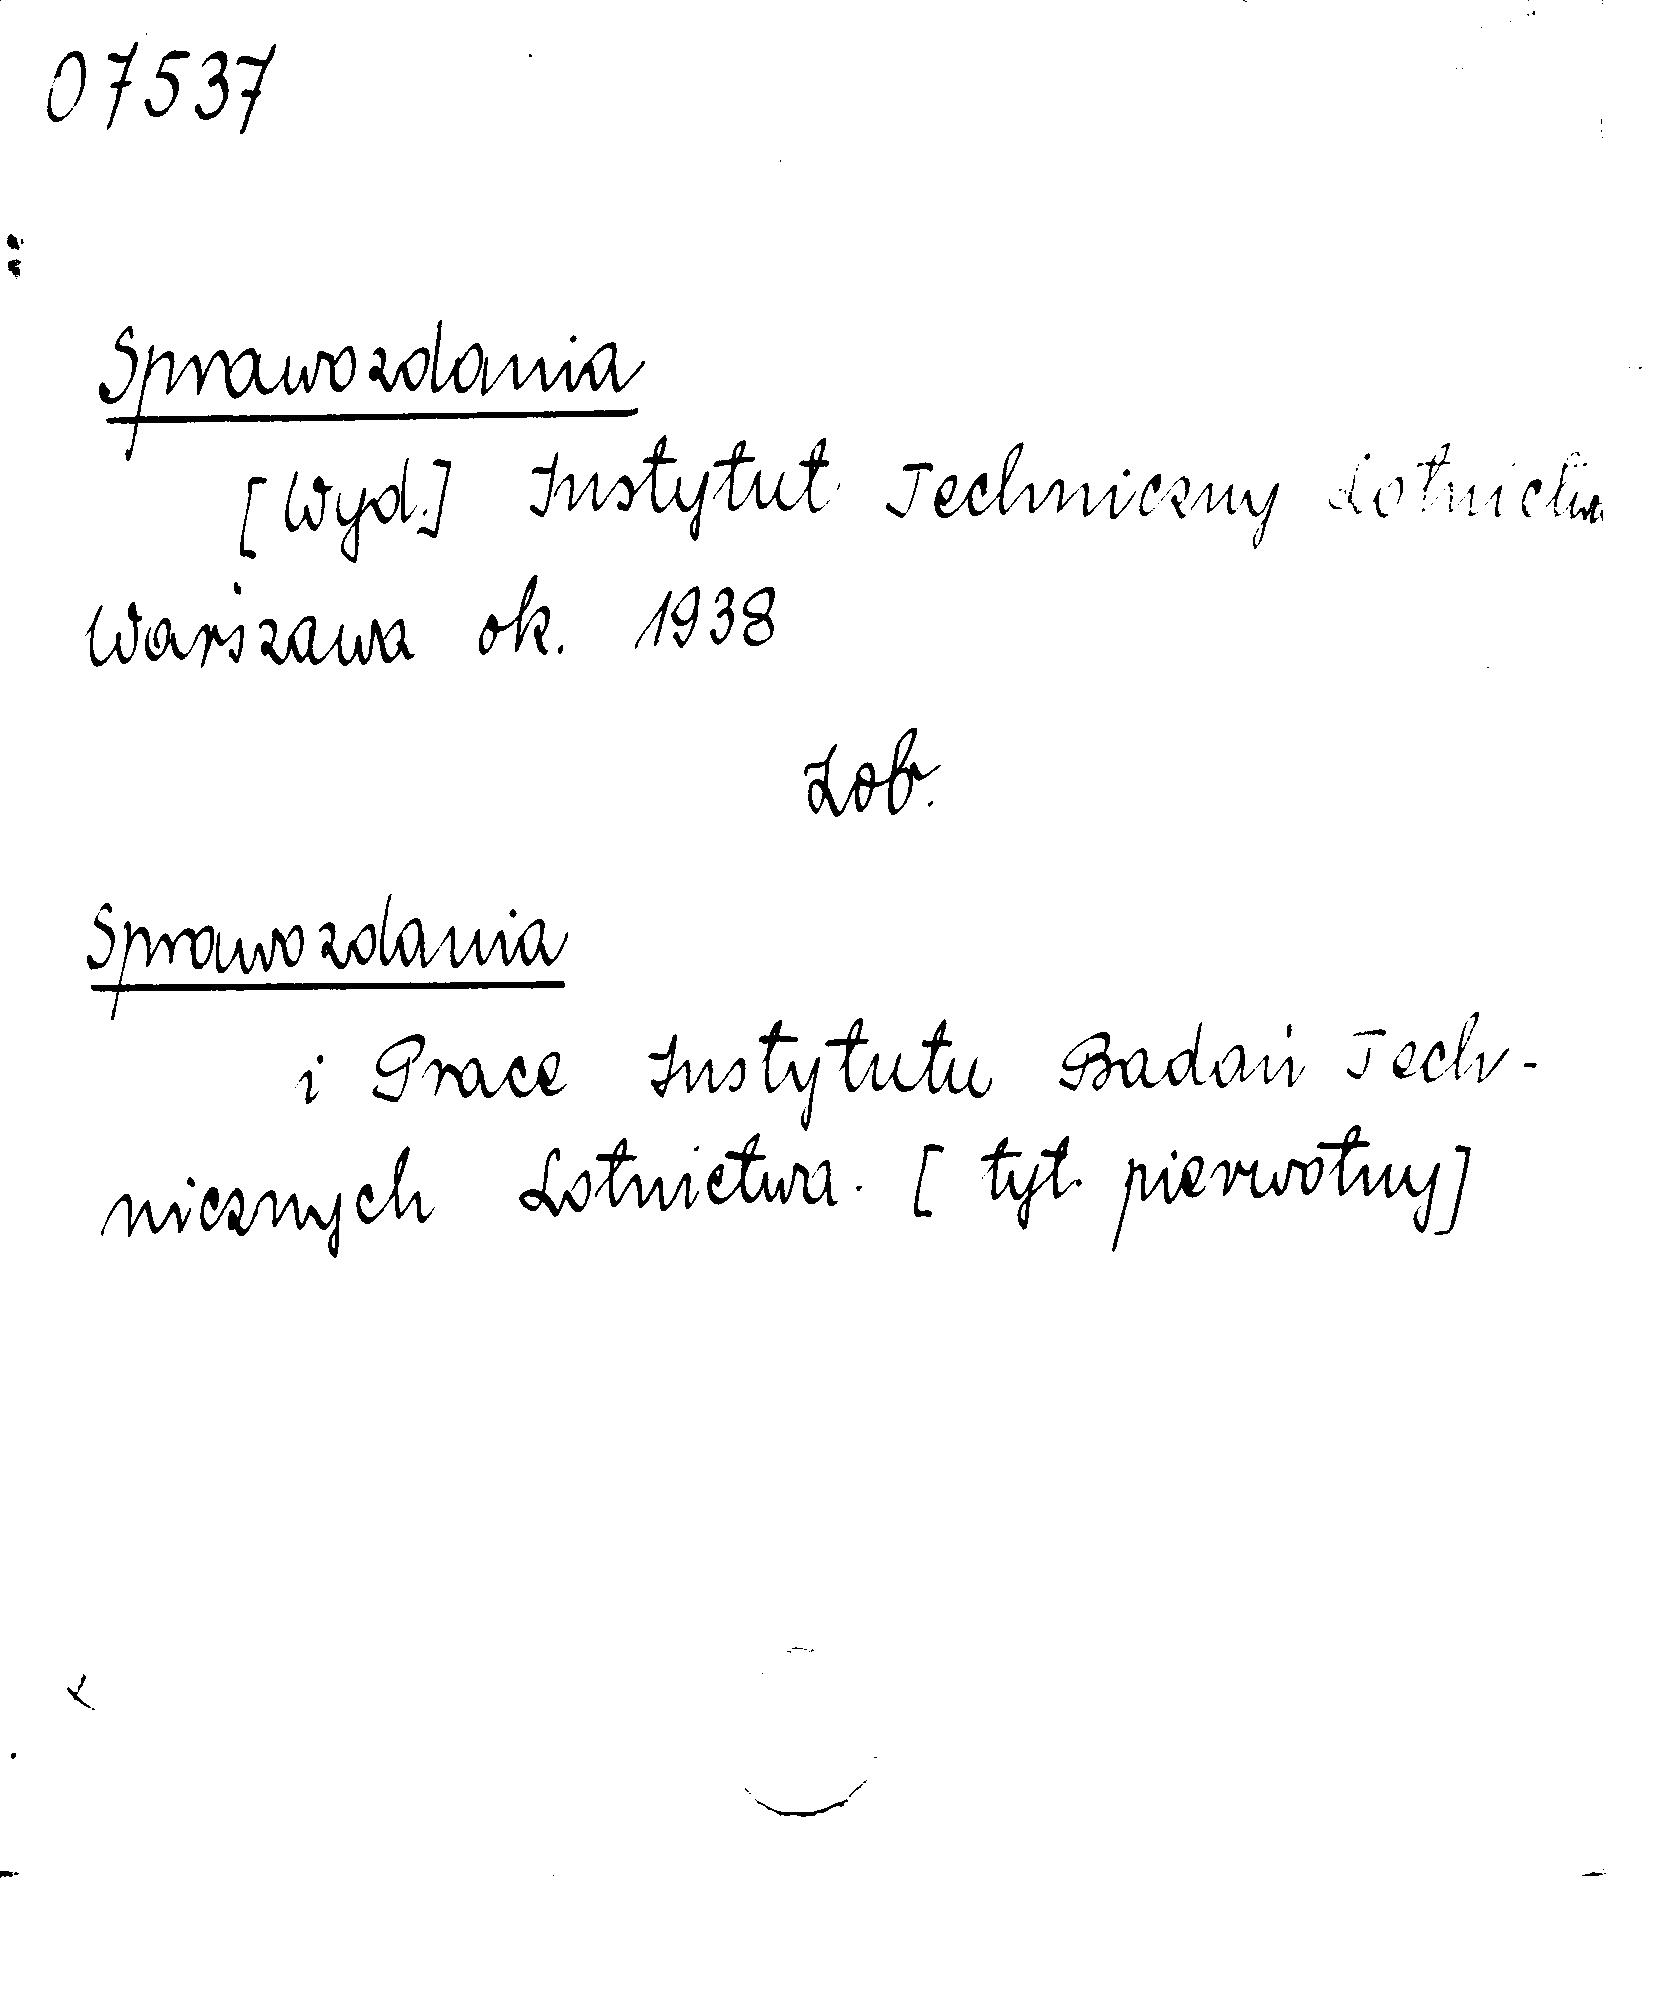 07537
Sprawozdania
[Wyd.] Instytut Techniczny Lotnictwa
Warszawa ok. 1938
Zob.
Sprawozdania
i Prace Instytutu Badań Tech-
nicznych Lotnictwa. [tyt. pierwotny]